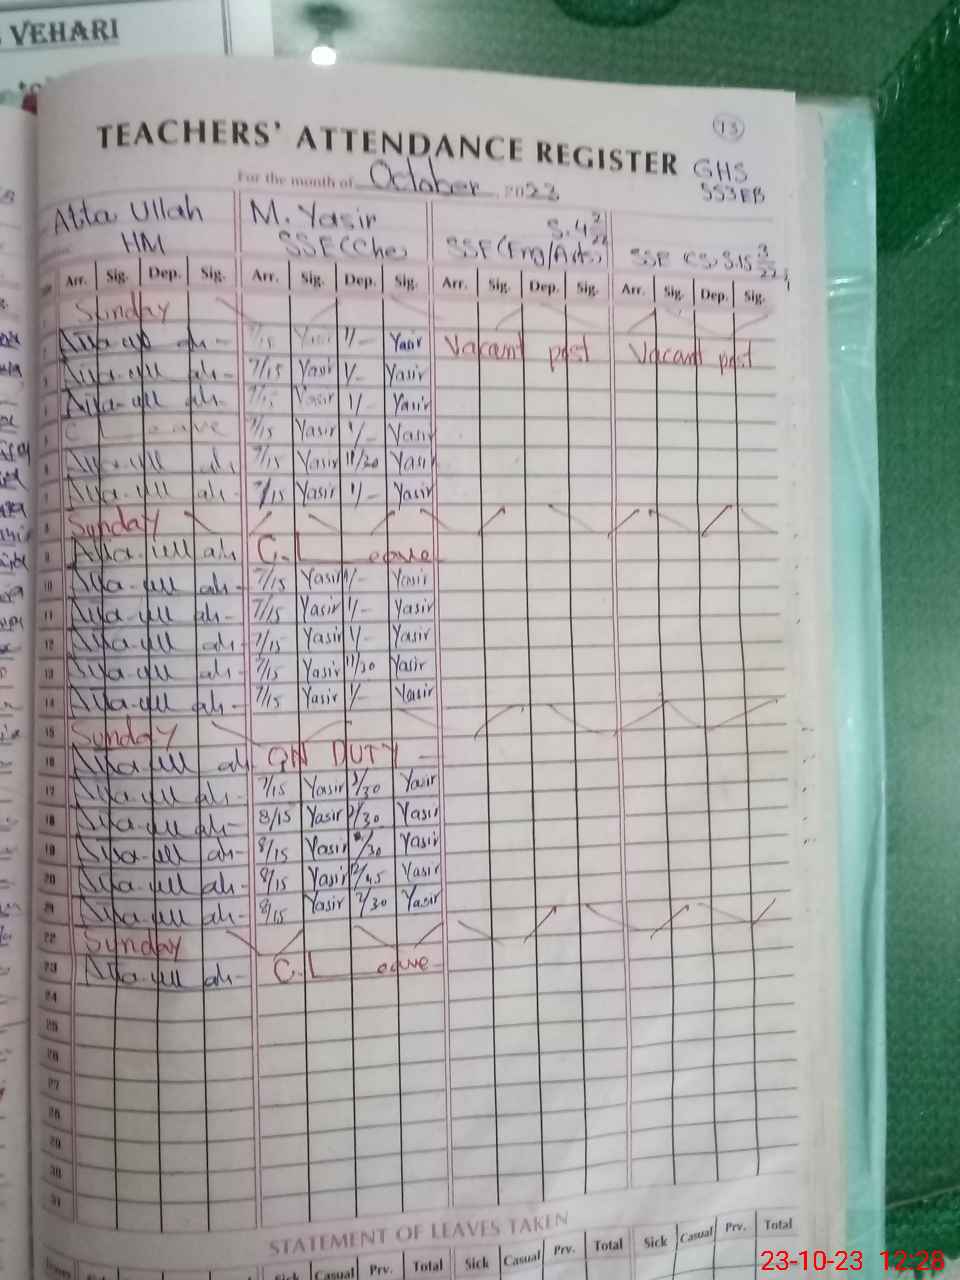 VEHARI
13
TEACHERS' ATTENDANCE REGISTER
GHS
For the month of October, 2023
Atta Ullah M. Yasir
HM SSE(Che) SSE(Eng/Arts)
Arr. Sig. Dep. Sig. Arr. Sig. Dep. Sig. Arr. Sig. Dep. Sig. Arr. Sig. Dep. Sig.
Sunday
Atta-ull ah 7/15 Yasir 1/- Yasir Vacant post Vacant post
Atta-ull ah 7/15 Yasir 1/- Yasir
Atta-ull ah 7/15 Yasir 1/- Yasir
C Leave 7/15 Yasir 1/- Yasir
Atta-ull ah 7/15 Yasir 11/30 Yasir
Atta-ull ah 7/15 Yasir 1/- Yasir
8 Sunday
9 Atta-ull ah C. Leave
10 Atta-ull ah 7/15 Yasir 1/- Yasir
11 Atta-ull ah 7/15 Yasir 1/- Yasir
12 Atta-ull ah 7/15 Yasir 1/- Yasir
13 Atta-ull ah 7/15 Yasir 11/30 Yasir
14 Atta-ull ah 7/15 Yasir 1/- Yasir
15 Sunday
16 Atta-ull ah ON DUTY
17 Atta-ull ah 7/15 Yasir Yasir
18 Atta-ull ah 8/15 Yasir Yasir
19 Atta-ull ah 8/15 Yasir Yasir
20 Atta-ull ah 8/15 Yasir Yasir
21 Atta-ull ah 8/15 Yasir 2/30 Yasir
22 Sunday
23 Atta-ull ah C. Leave
24
25
26
27
28
29
30
31
STATEMENT OF LEAVES TAKEN
Casual Prv. Total Sick Casual Prv. Total Sick Casual Prv. Total
23-10-23 12:28